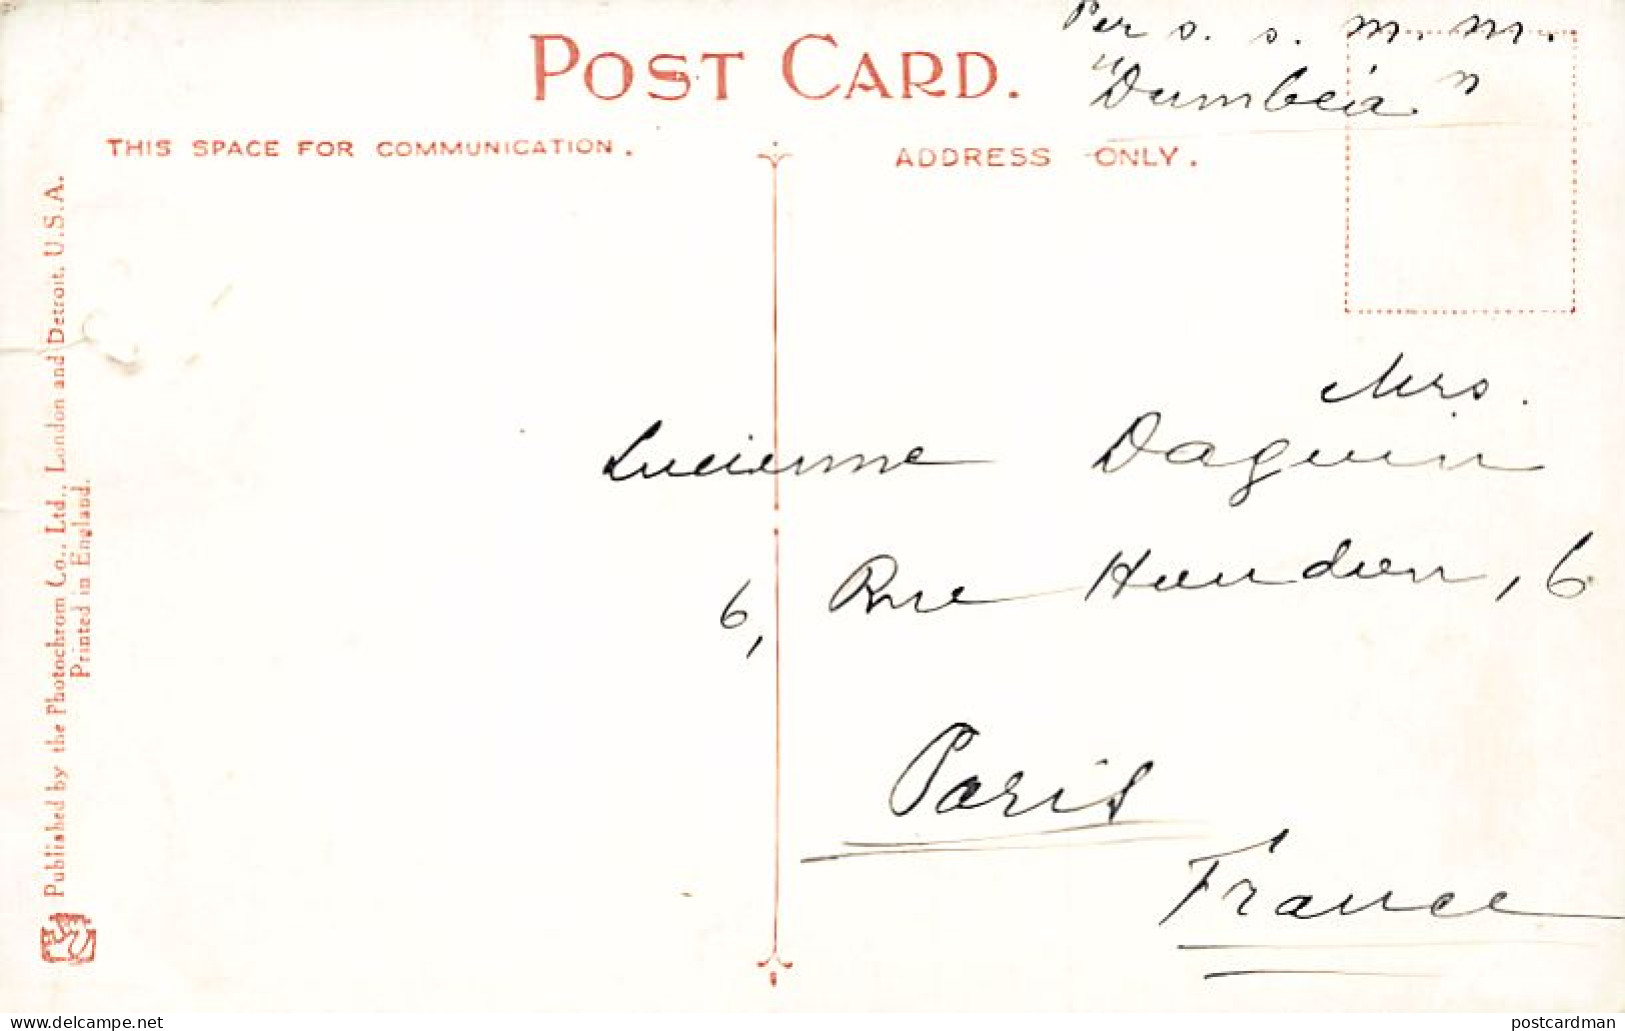 Per s. s. m. m.
"Dumbéa"
POST CARD.
THIS SPACE FOR COMMUNICATION.
ADDRESS ONLY.
Mrs.
Lucienne Daguin
6, Rue Houdon, 6
Paris
France
Published by the Photochrom Co., Ltd., London and Detroit, U.S.A.
Printed in England.
delcampe.net
postcardman